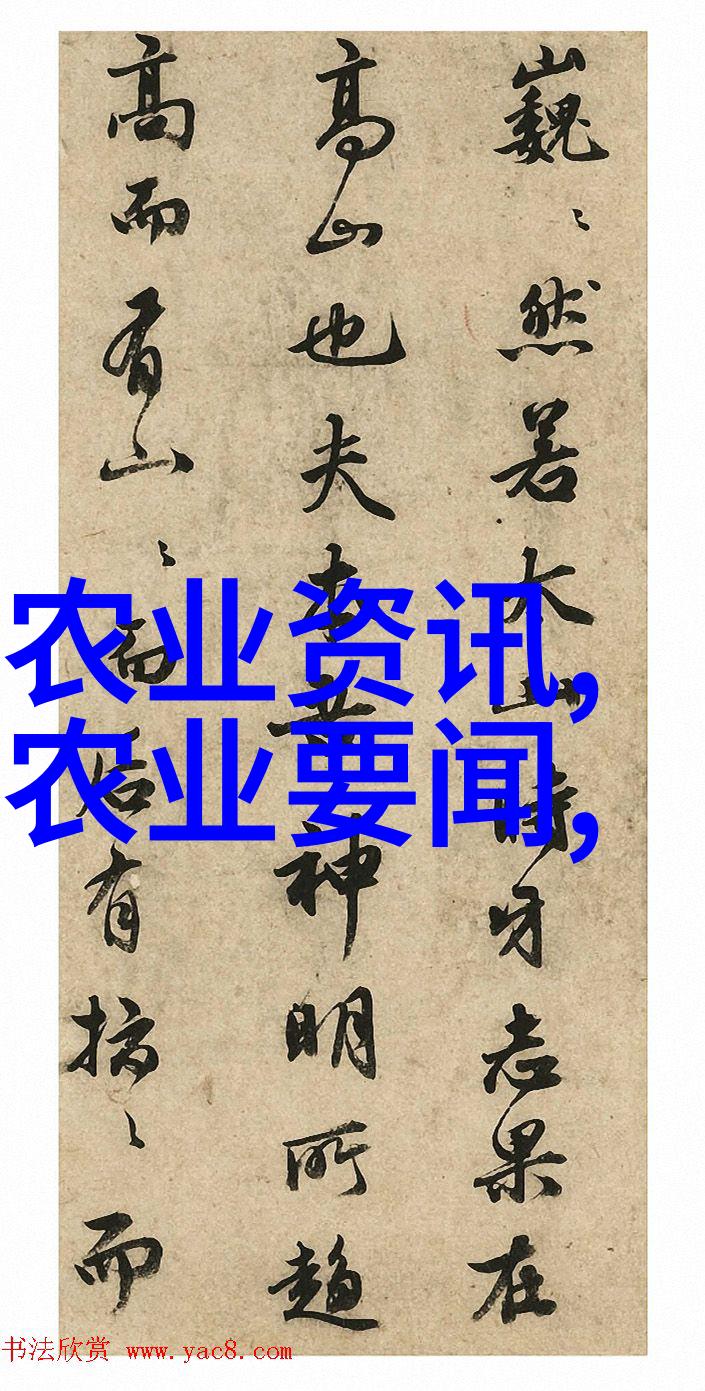 巍〻然若太山時牙志果在
高山也夫神明所趨
高而有山〻而后有〻而
农业资讯,
农业要闻,
书法欣赏 www.yac8.com